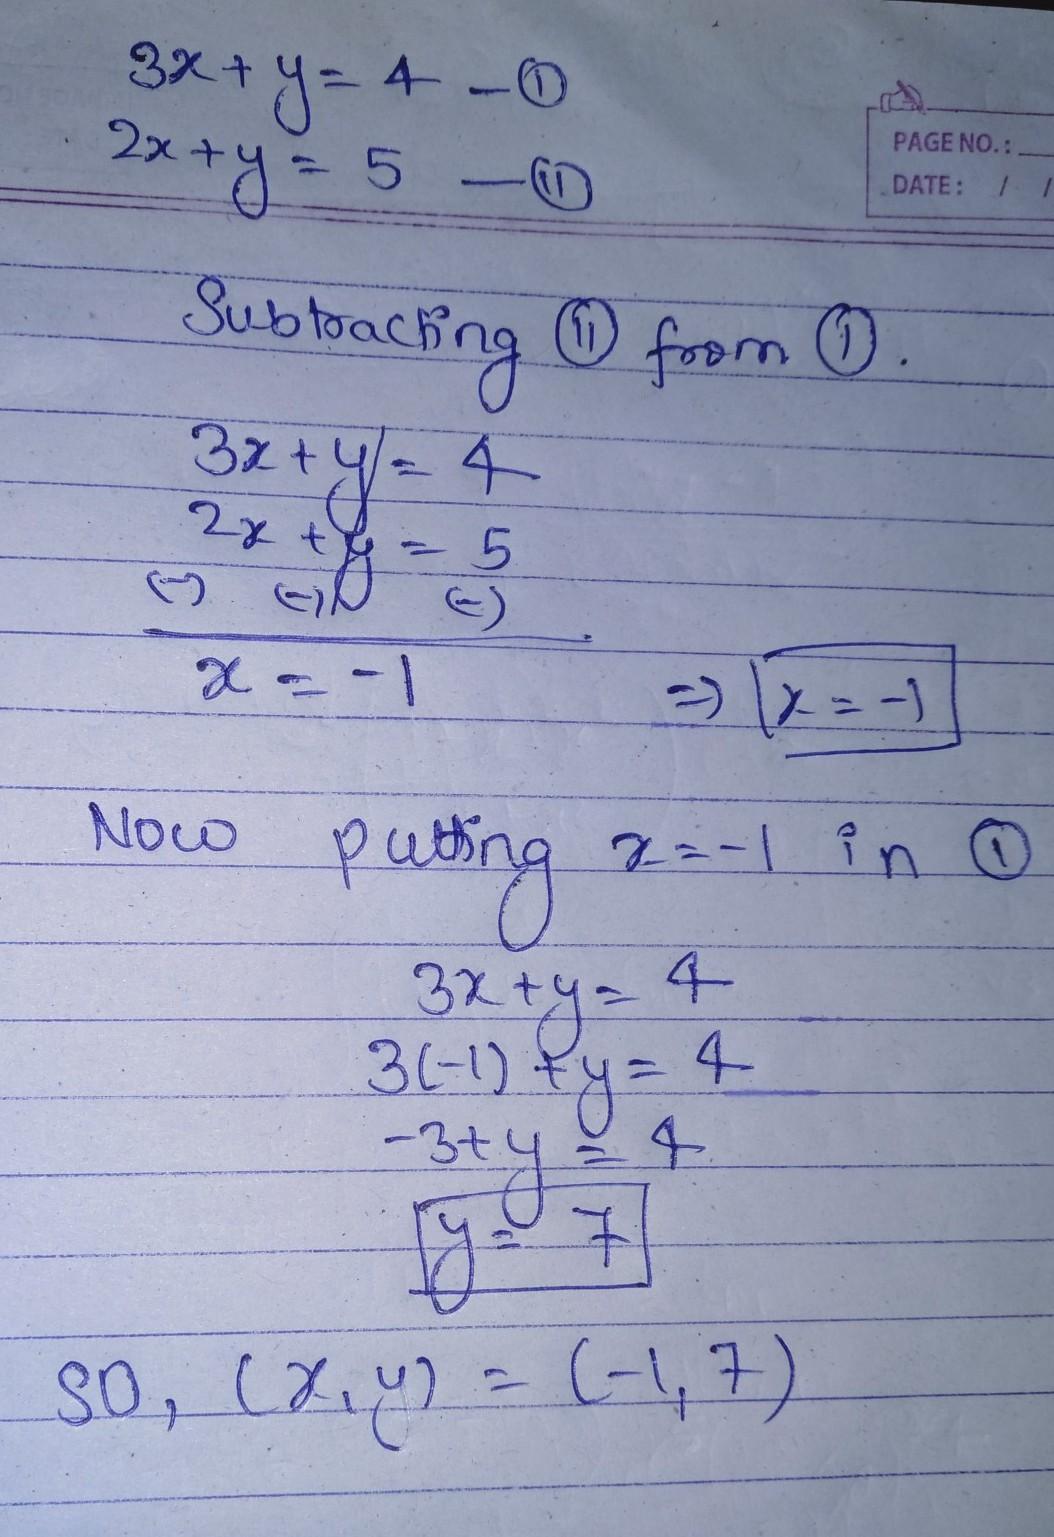 3x + y = 4 - ①
2x + y = 5 - ⑪
PAGE NO.:
DATE: / /
Subtracting ⑪ from ①.
3x + y = 4
2x + y = 5
(-) (-) (-)
x = -1 => x = -1
Now putting x = -1 in ①
3x + y = 4
3(-1) + y = 4
-3 + y = 4
y = 7
SO, (x, y) = (-1, 7)